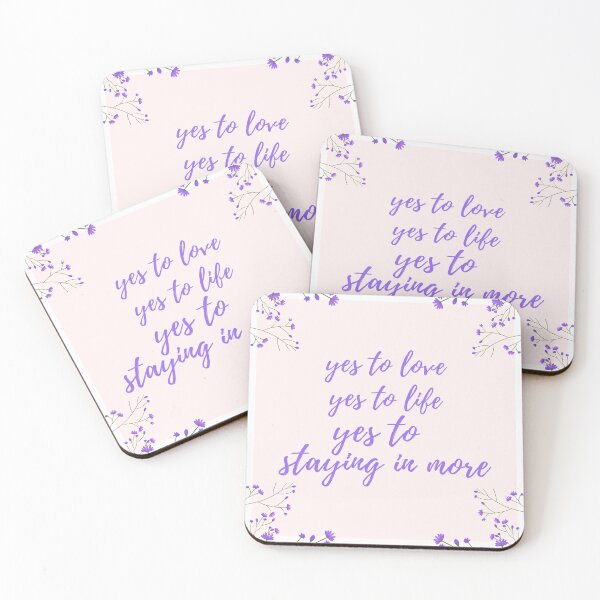 yes to love
yes to life
mo
yes to love
yes to life
yes to
staying in more
yes to love
yes to life
yes to
staying in
yes to love
yes to life
yes to
staying in more